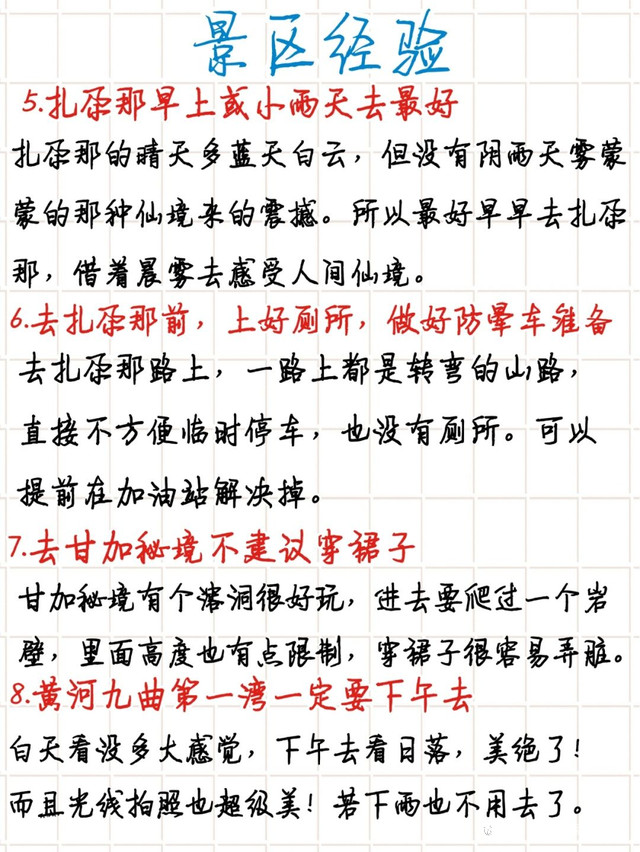 景区经验
5.扎尕那早上或小雨天去最好
扎尕那的晴天多蓝天白云，但没有阴雨天雾蒙
蒙的那种仙境来的震撼。所以最好早早去扎尕
那，借着晨雾去感受人间仙境。
6.去扎尕那前，上好厕所，做好防晕车准备
去扎尕那路上，一路上都是转弯的山路，
直接不方便临时停车，也没有厕所。可以
提前在加油站解决掉。
7.去甘加秘境不建议穿裙子
甘加秘境有个溶洞很好玩，进去要爬过一个岩
壁，里面高度也有点限制，穿裙子很容易弄脏。
8.黄河九曲第一湾一定要下午去
白天看没多大感觉，下午去看日落，美绝了！
而且光线拍照也超级美！若下雨也不用去了。